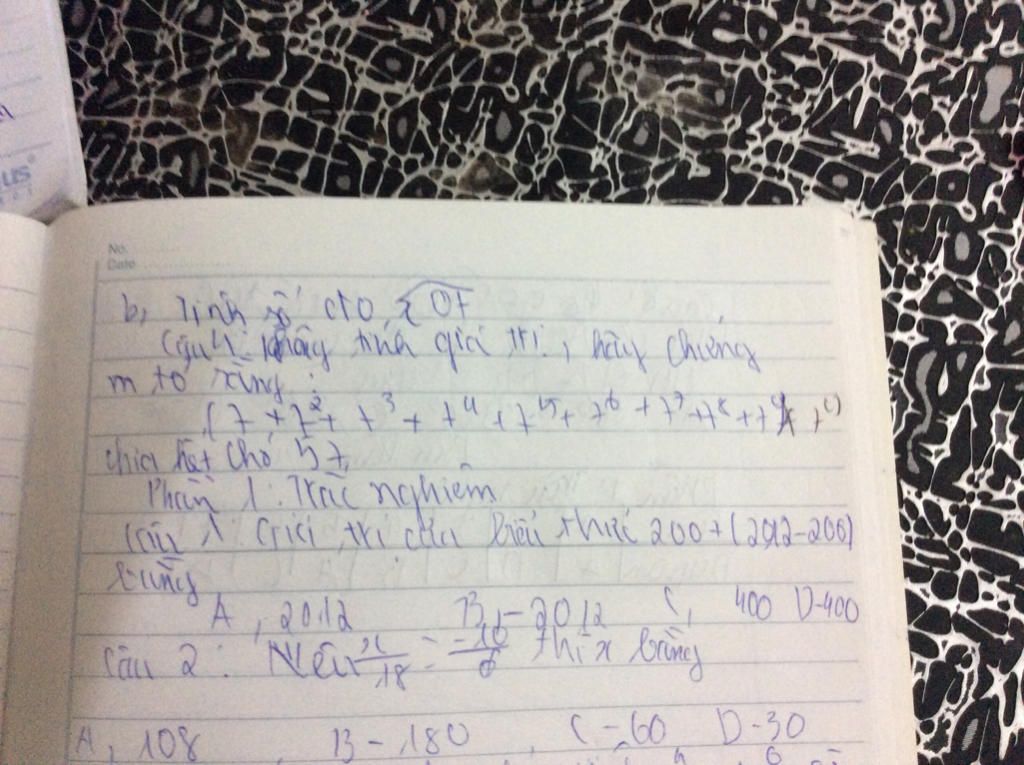 us
No.
Date
b, Tính số đo xOt
Câu 4: không tính giá trị, hãy chứng
m tỏ rằng:
(7 + 7² + 7³ + 7⁴ + 7⁵ + 7⁶ + 7⁷ + 7⁸ + 7⁹
chia hết cho 57
Phần 1: Trắc nghiệm
Câu 1 Giá trị của biểu thức 200 + (2012 - 200)
bằng
A, 2012 B, -2012 C, 400 D -400
Câu 2: Nếu x/18 = -10/6 thì x bằng
A, 108 B - 180 C - 60 D - 30